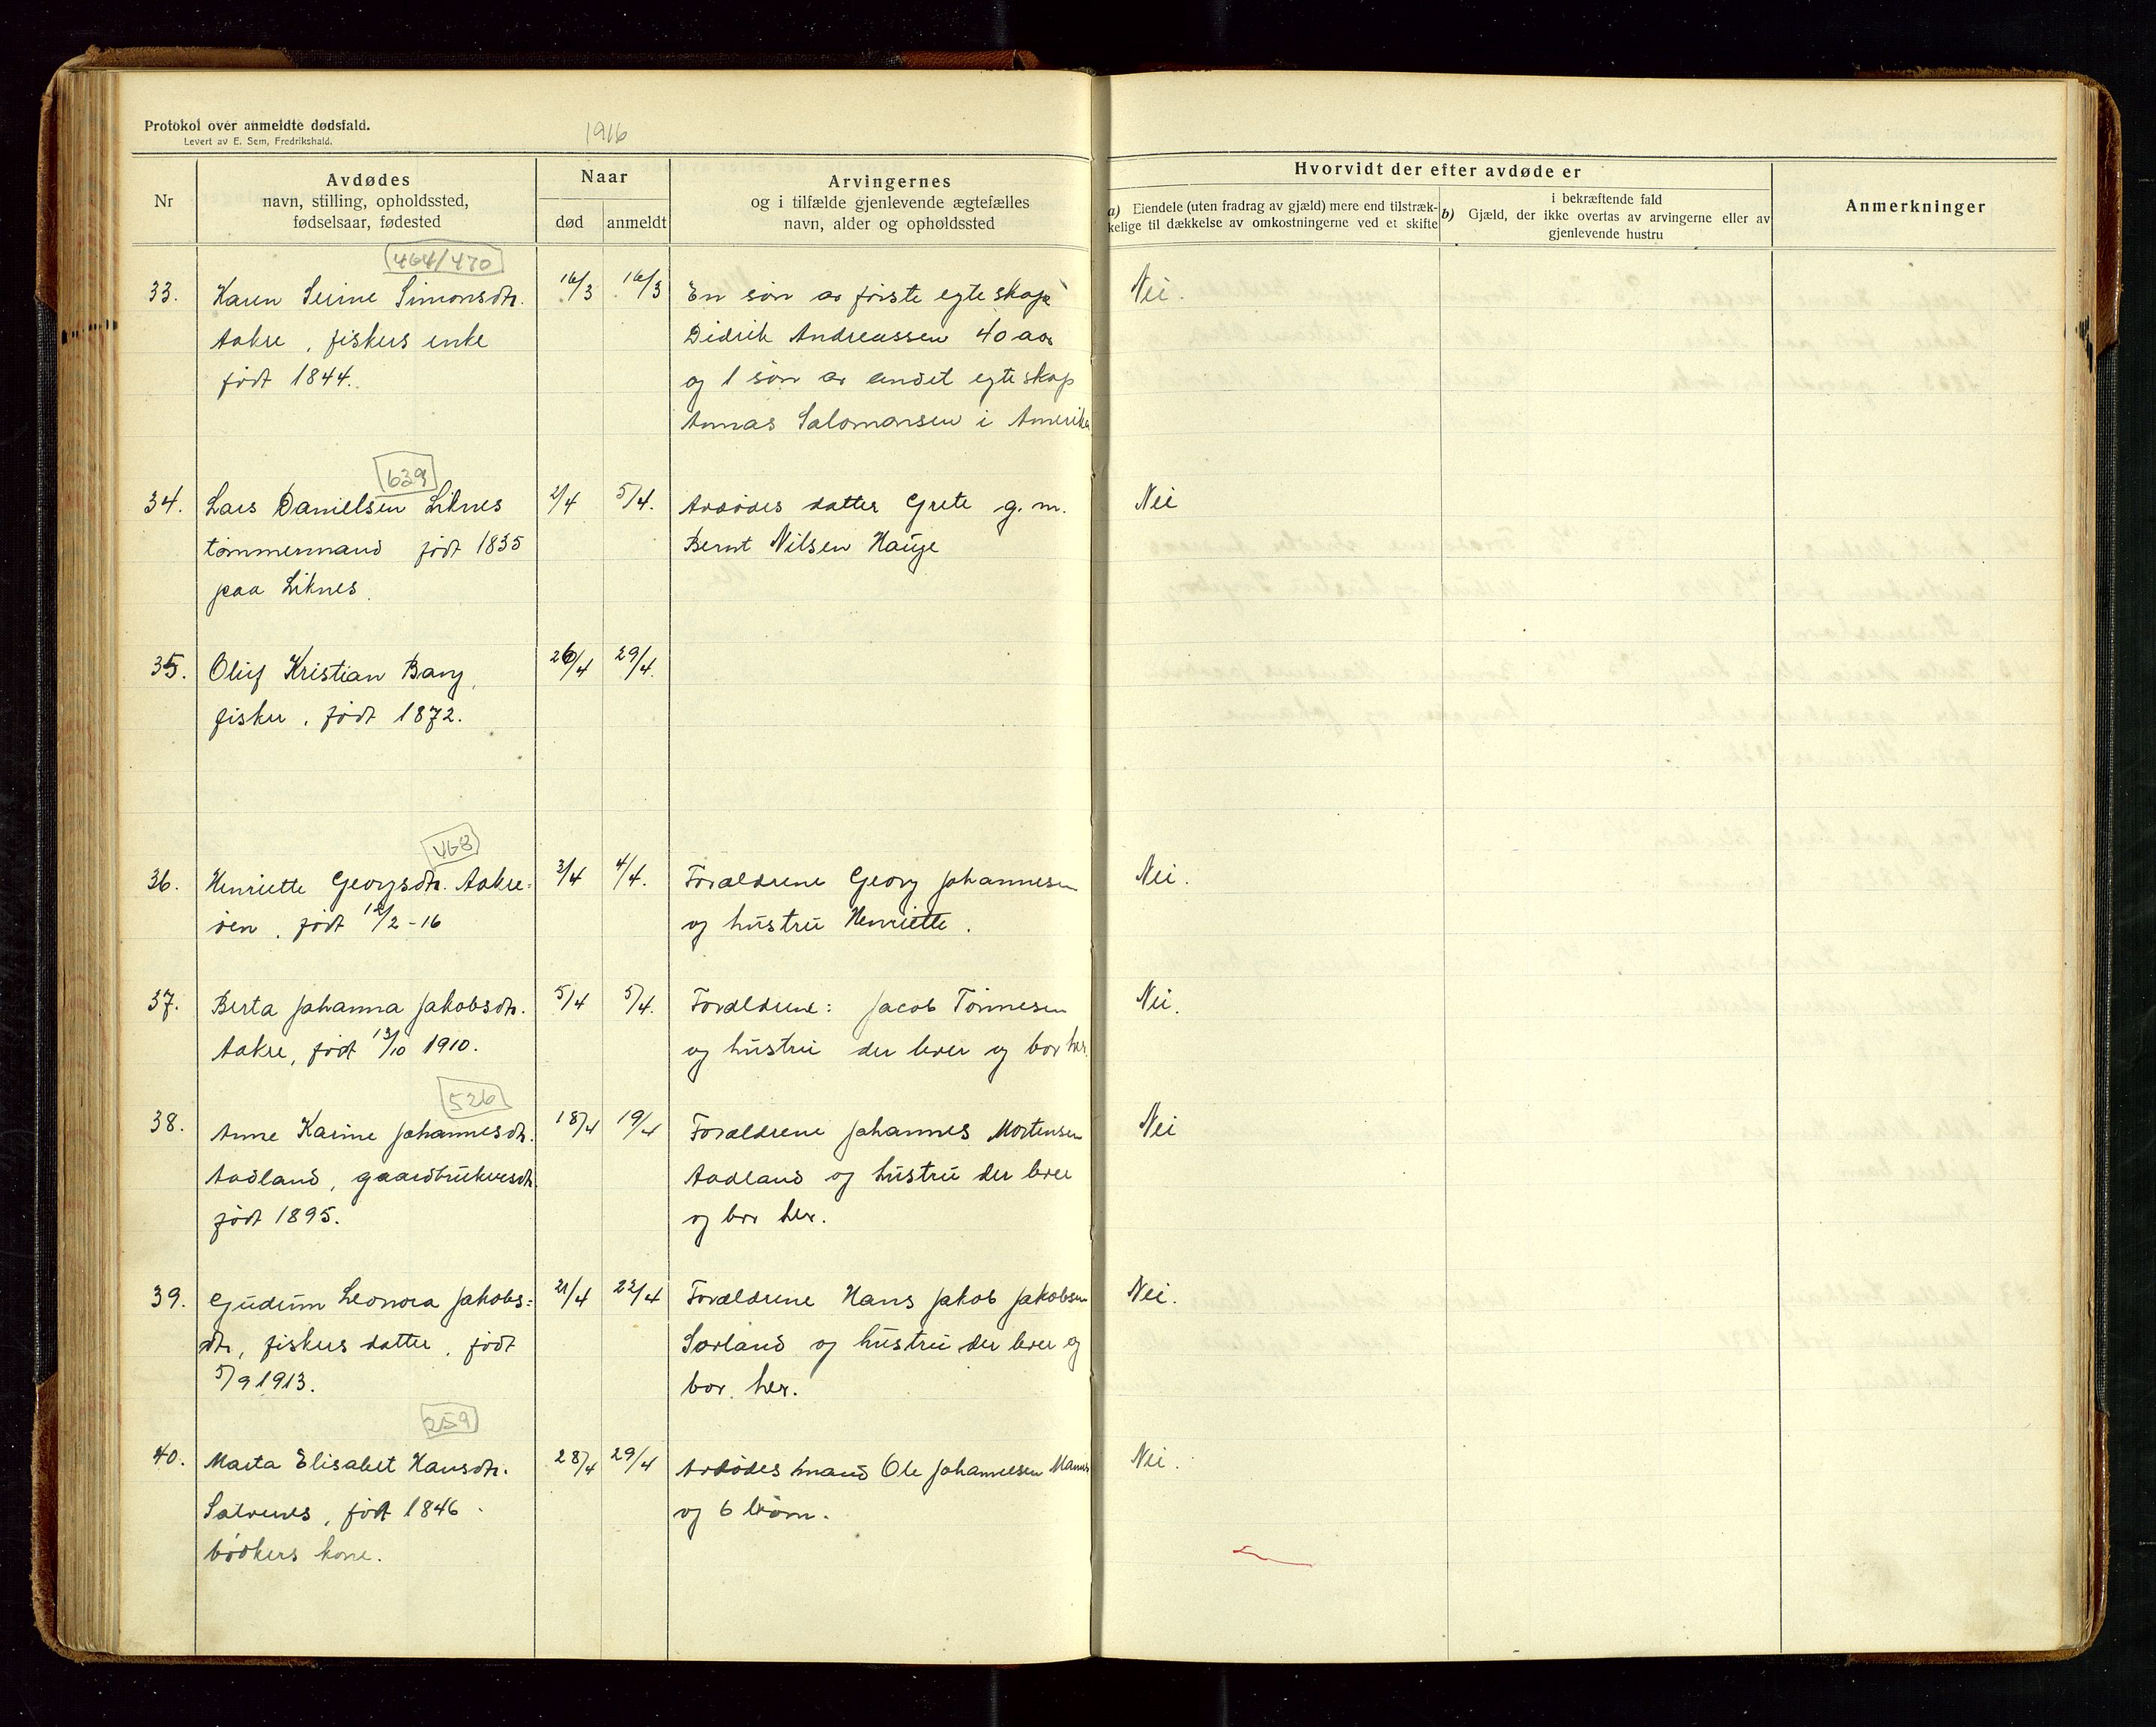 Protokol over anmeldte dødsfald.
Levert av E. Sem, Fredrikshald.
1916
Nr
Avdødes
navn, stilling, opholdssted,
fødselsaar, fødested
Naar
død
anmeldt
Arvingernes
og i tilfælde gjenlevende ægtefælles
navn, alder og opholdssted
Hvorvidt der efter avdøde er
a) Eiendele (uten fradrag av gjæld) mere end tilstræk-
kelige til dækkelse av omkostningerne ved et skifte
b)
i bekræftende fald
Gjæld, der ikke overtas av arvingerne eller av
gjenlevende hustru
Anmerkninger
464/470
33.
Karen Serine Simonsdtr.
Aakre, fiskers enke
født 1844.
16/3
16/3
En søn av første egteskap
Didrik Andreassen 40 aar
og 1 søn av andet egteskap
Annas Salomonsen i Amerika
Nei.
629
34.
Lars Danielsen Liknes
tømmermand født 1835
paa Liknes.
2/4
5/4.
Avdødes datter Grete g. m.
Bernt Nilsen Hauge
Nei
35.
Oluf Kristian Bang,
fisker, født 1872.
26/4
29/4.
468
36.
Henriette Georgsdtr. Aakre-
øen, født 12/2-16
3/4
4/4.
Forældrene Georg Johannesen
og hustru Henriette.
Nei.
37.
Berta Johanna Jakobsdtr.
Aakre, født 13/10 1910.
5/4
5/4.
Forældrene: Jacob Tønnesen
og hustru der lever og bor her.
Nei.
526
38.
Anne Karine Johannesdtr.
Aadland, gaardbrukersdtr.
født 1895.
18/4
19/4
Forældrene Johannes Mortensen
Aadland og hustru der lever
og bor her.
Nei
39.
Gudrun Leonora Jakobs=
dtr, fiskers datter, født
5/9 1913.
21/4
22/4
Forældrene Hans Jakob Jakobsen
Sørland og hustru der lever og
bor her.
Nei.
259
40.
Marta Elisabet Hansdtr.
født 1846.
bødkers kone.
28/4
29/4
Avdødes mand Ole Johannesen
og 6 børn.
Nei.